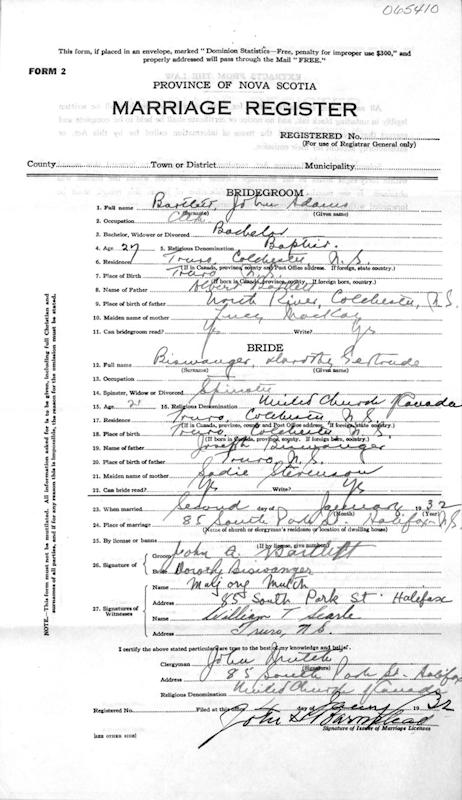 065410
This form, if placed in an envelope, marked "Dominion Statistics—Free, penalty for improper use $300," and
properly addressed will pass through the Mail "FREE."
FORM 2
PROVINCE OF NOVA SCOTIA
MARRIAGE REGISTER
REGISTERED No.
(For use of Registrar General only)
County Town or District Municipality
BRIDEGROOM
1. Full name Bartlett John Adams
(Surname) (Given name)
2. Occupation Clerk
3. Bachelor, Widower or Divorced Bachelor
4. Age 27 5. Religious Denomination Baptist.
6. Residence Truro, Colchester N.S.
(If in Canada, province, county and Post Office address. If foreign, state country.)
7. Place of Birth Truro N.S.
(If born in Canada, province, county. If foreign born, country.)
8. Name of Father Albert Bartlett
9. Place of birth of father North River, Colchester, N.S.
10. Maiden name of mother Lucy MacKay
11. Can bridegroom read? Yes Write? Yes
BRIDE
12. Full name Biswanger, Dorothy Gertrude
(Surname) (Given name)
13. Occupation
14. Spinster, Widow or Divorced Spinster
15. Age 21 16. Religious Denomination United Church Canada
17. Residence Truro, Colchester N.S.
(If in Canada, province, county and Post Office address. If foreign, state country.)
18. Place of birth Truro, Colchester N.S.
(If born in Canada, province, county. If foreign born, country.)
19. Name of father Joseph Biswanger
20. Place of birth of father Truro, N.S.
21. Maiden name of mother Sadie Stevenson
22. Can bride read? Yes Write? Yes
23. When married Second day of January 1932
(Month) (Year)
24. Place of marriage 85 South Park St. Halifax N.S.
(Name of church or clergyman's residence or location of dwelling house)
25. By license or banns
(If by license, give number)
26. Signature of
Groom John A. Bartlett
Bride Dorothy Biswanger
27. Signatures of Witnesses
Name Mutch
Address 85 South Park St. Halifax
Name William T. Searle
Address Truro, N.S.
I certify the above stated particulars are true to the best of my knowledge and belief.
Clergyman John Mutch
(Signature)
Address 85 South Park St. Halifax
Religious Denomination United Church Canada
Registered No. Filed at this office day of 1932
John
Signature of Issuer of Marriage Licenses
[SEE OTHER SIDE]
NOTE.—This form must not be mutilated. All information asked for is to be given, including full Christian and
surname of all parties, and if for any reason this is impossible, the reason for the omission must be stated.